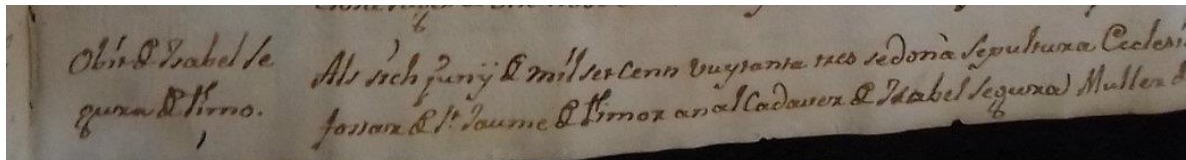 Obit de Isabel Se
gura de Timo.
Als sich Juny de mil set cenn vuytanta tres se dona sepultura Eclesi
fossar de St. Jaume de Timor an al Cadaver de Isabel Segura Muller d